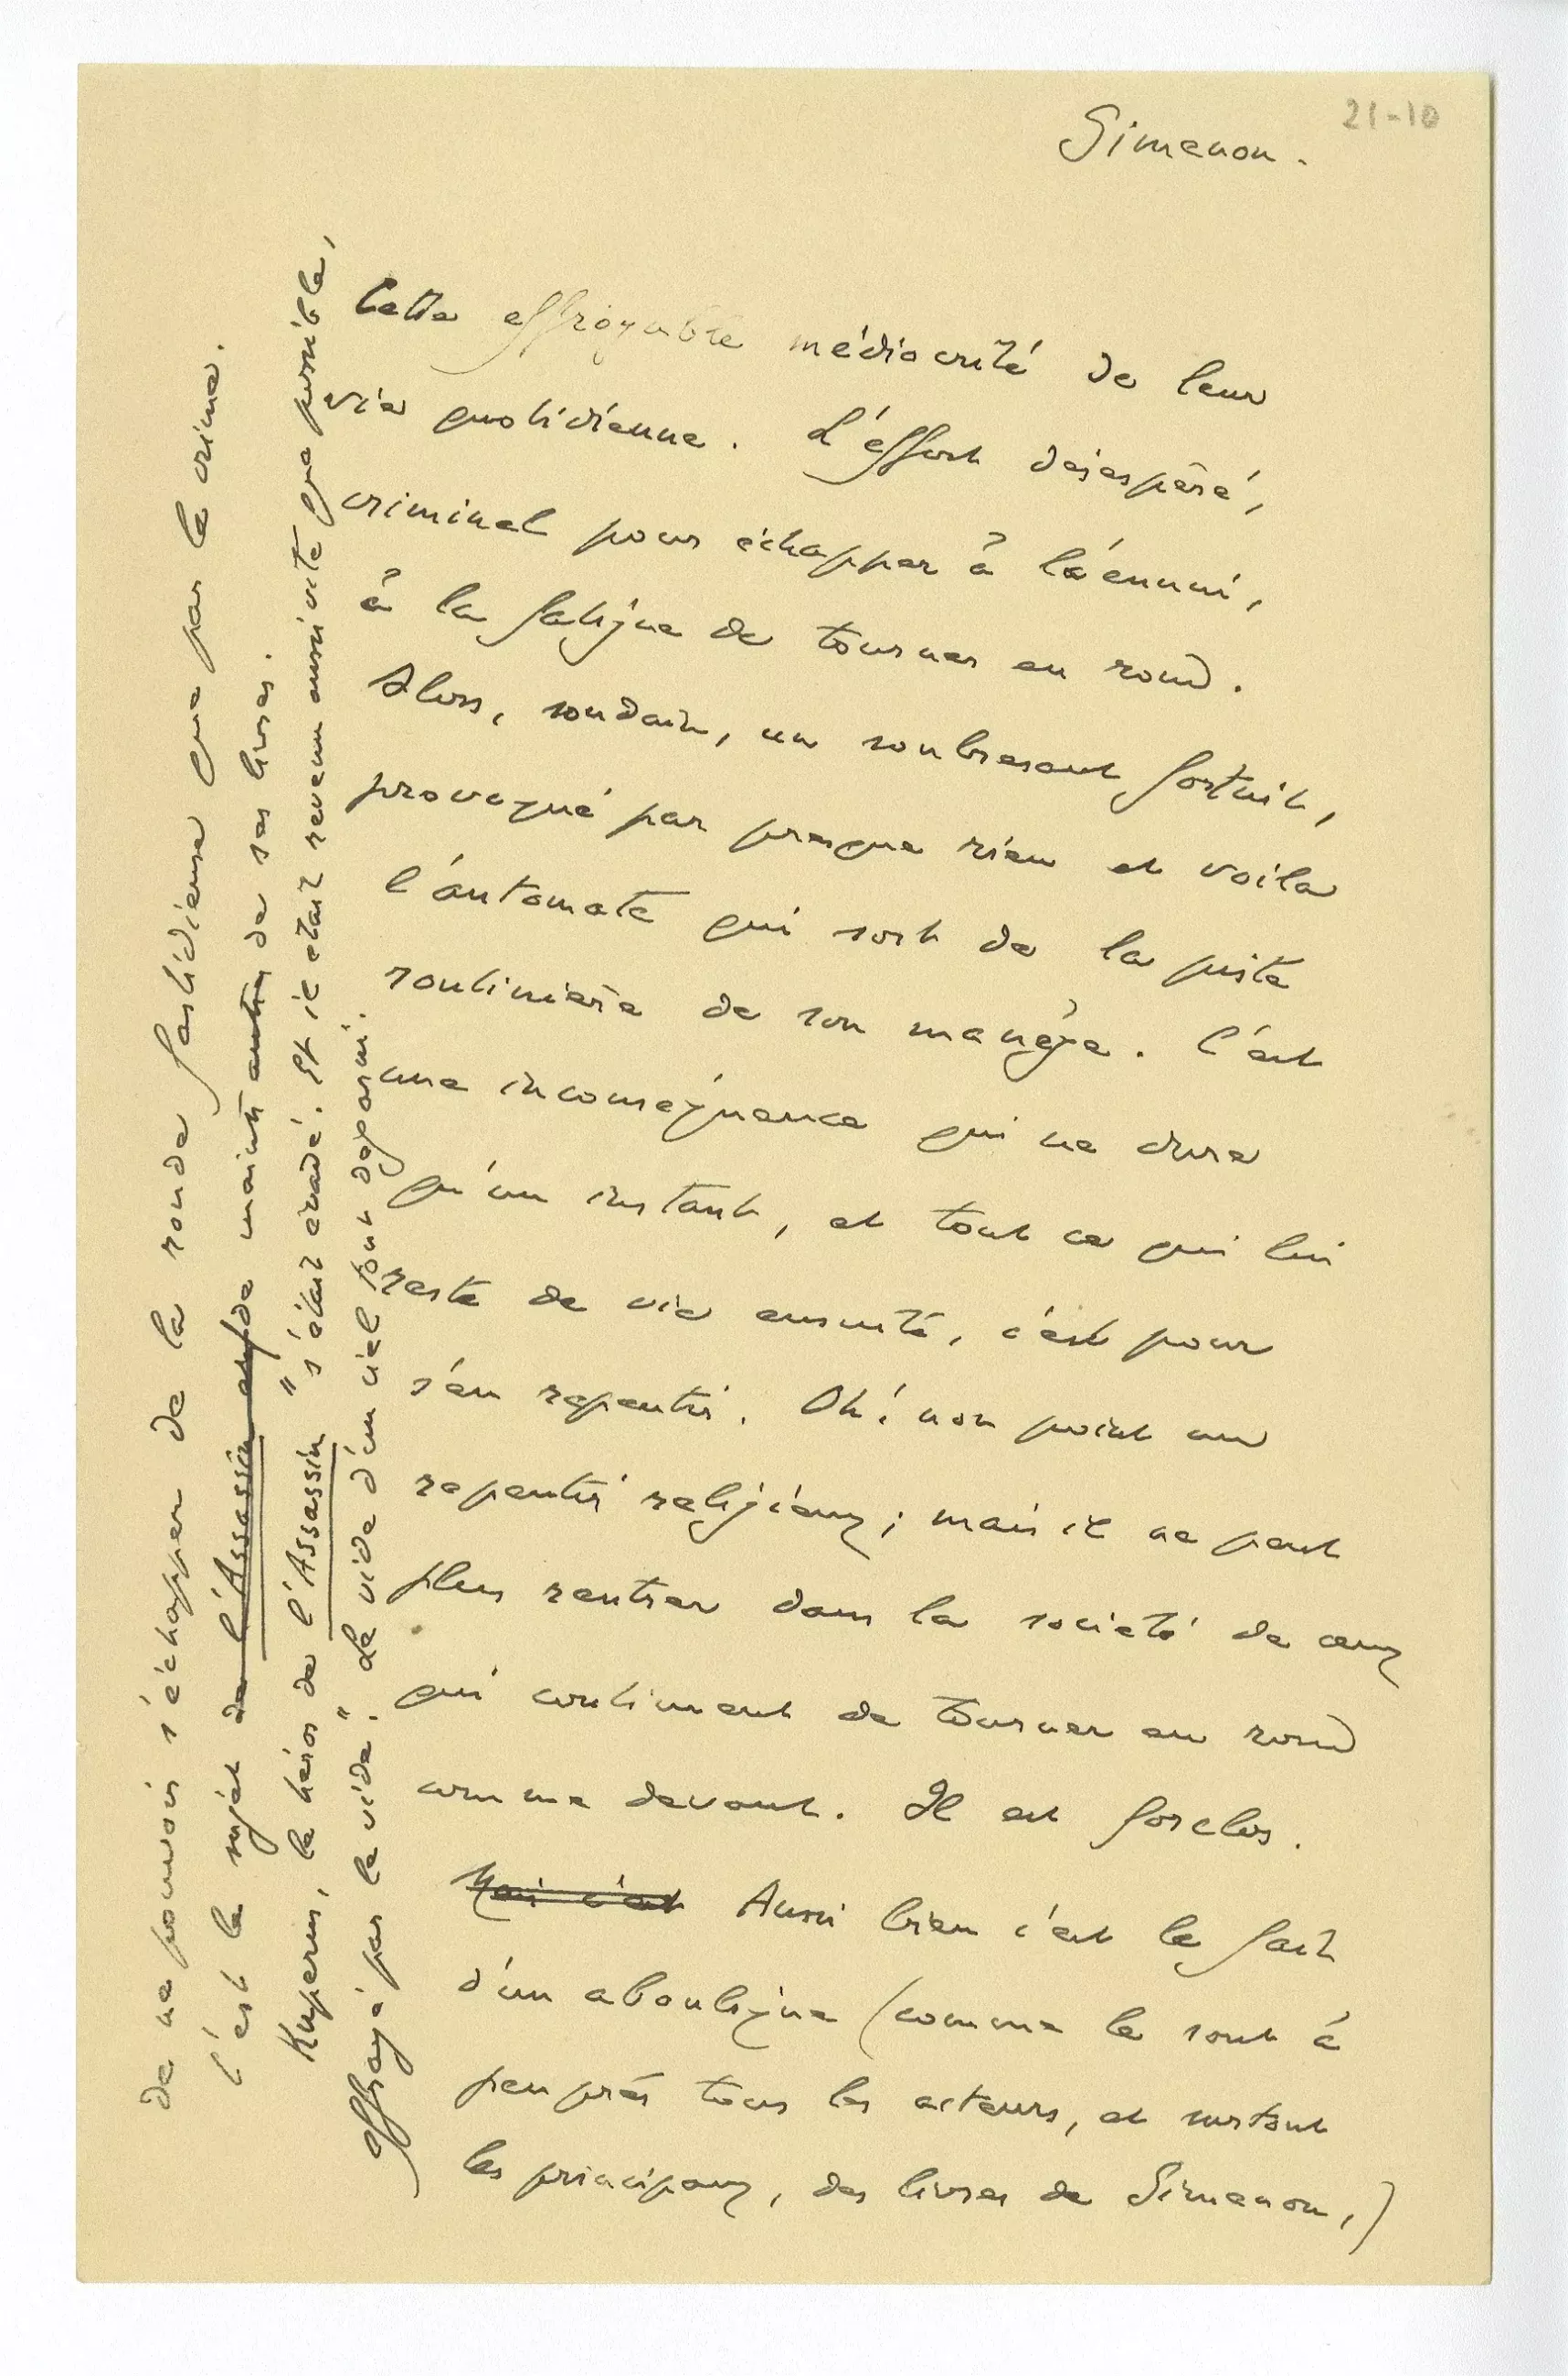 21-10
Simenon.
Cette effroyable médiocrité de leur
vie quotidienne. L'effort désespéré,
criminel pour échapper à l'ennui,
à la fatigue de tourner en rond.
Alors, soudain, un soubresaut fortuit,
provoqué par presque rien et voila
l'automate qui sort de la piste
routinière de son manège. C'est
une inconséquence qui ne dure
qu'un instant, et tout ce qui lui
reste de vie ensuite, c'est pour
s'en repentir. Oh! non point un
repentir religieux; mais il ne peut
plus rentrer dans la société de ceux
qui continuent de tourner en rond
comme devant. Il est forclos.
Mais c'est Aussi bien c'est le fait
d'un aboulique (comme le sont à
peu près tous les acteurs, et surtout
les principaux, des livres de Simenon,)
de ne pouvoir s'échapper de la ronde fastidieuse que par le crime.
C'est le sujet de l'Assassin et de maint autre de ses livres.
Kuperus, le héros de l'Assassin "s'était évadé. Et il était revenu aussi vite que possible,
effrayé par le vide." Le vide d'un ciel tout dégarni.